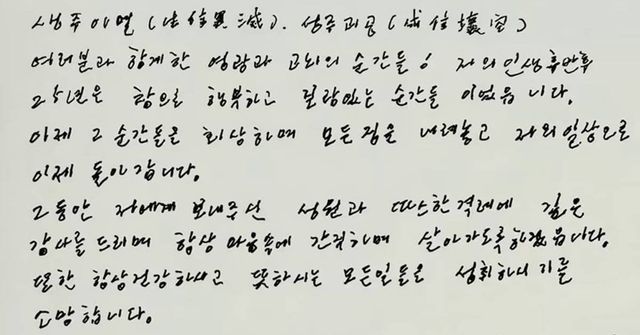 생주이멸(生住異滅). 성주괴공(成住壞空)
여러분과 함께한 영광과 고뇌의 순간들! 저의 인생후반부
25년은 참으로 행복하고 보람있는 순간들 이었읍니다.
이제 그 순간들을 회상하며 모든짐을 내려놓고 저의일상으로
이제 돌아갑니다.
그동안 저에게 보내주신 성원과 따스한격려에 깊은
감사를 드리며 항상 마음속에 간직하며 살아가도록하겠읍니다.
또한 항상건강하시고 뜻하시는 모든일들을 성취하시기를
소망합니다.